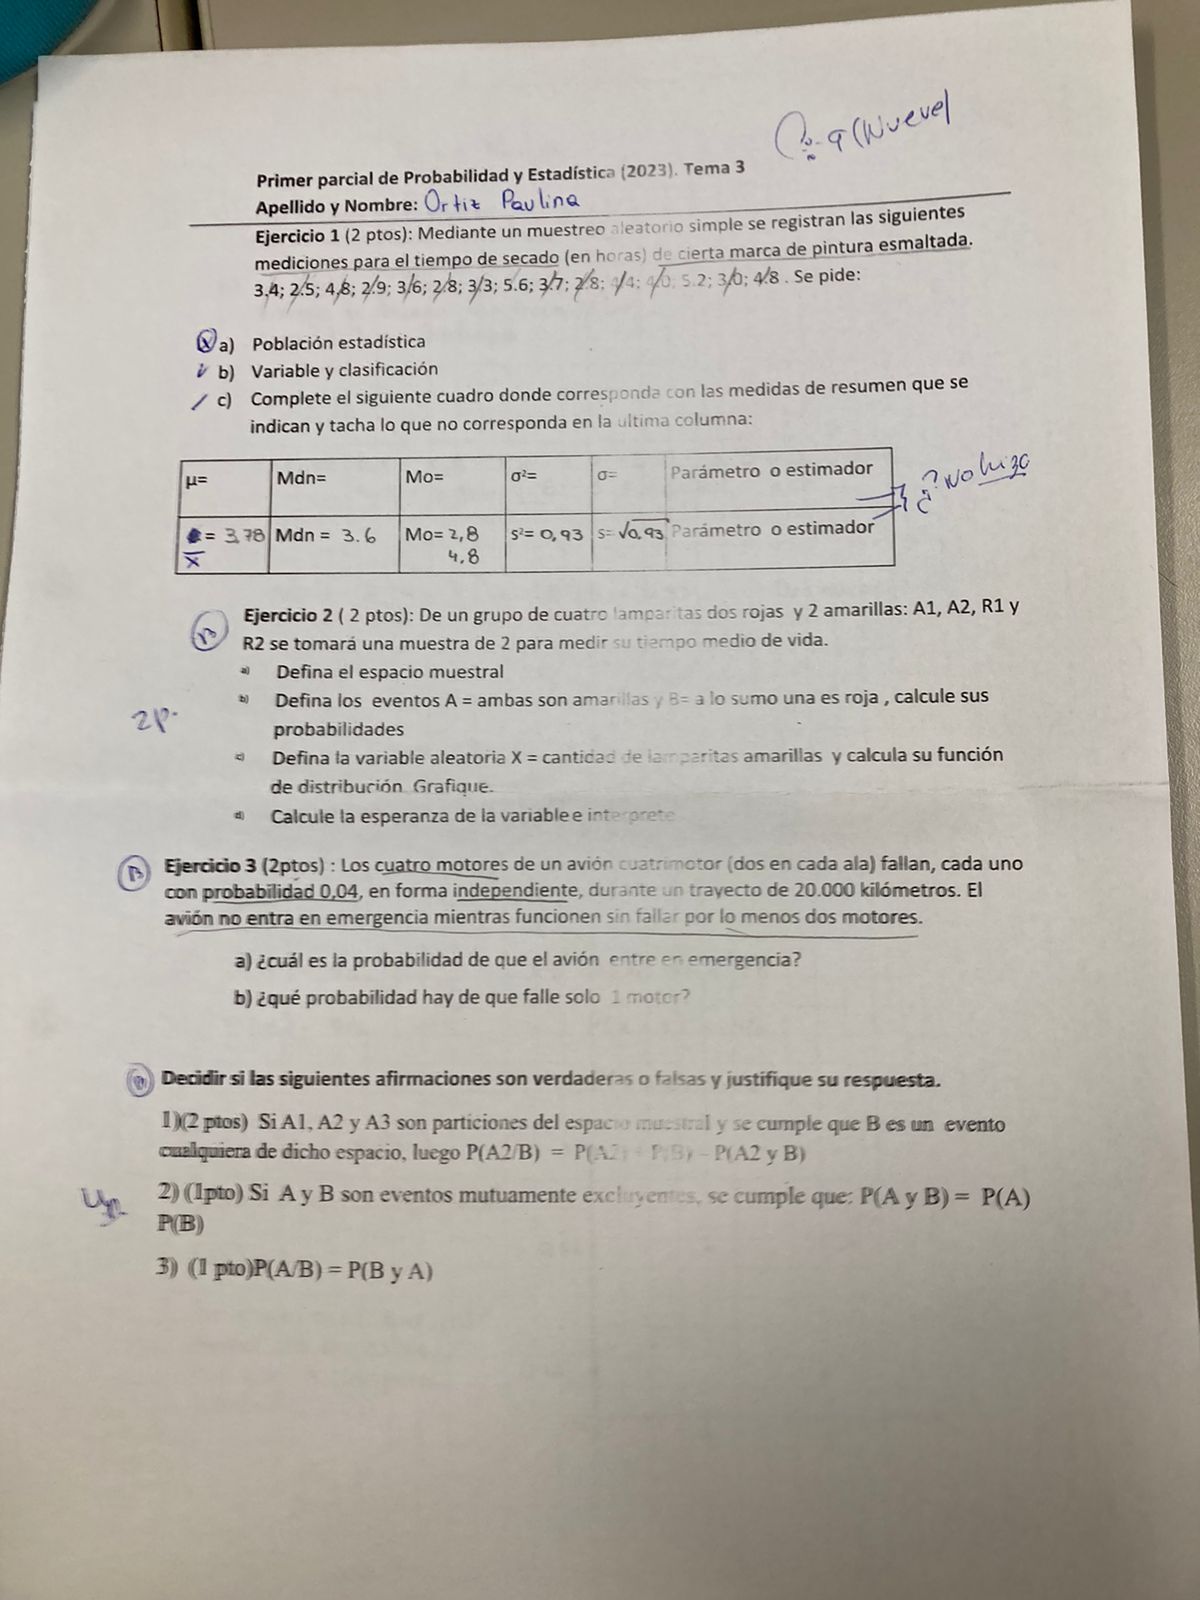 9 (Nueve)
Primer parcial de Probabilidad y Estadística (2023). Tema 3
Apellido y Nombre: Ortiz Paulina
Ejercicio 1 (2 ptos): Mediante un muestreo aleatorio simple se registran las siguientes
mediciones para el tiempo de secado (en horas) de cierta marca de pintura esmaltada.
3,4; 2.5; 4,8; 2/9; 3/6; 2/8; 3/3; 5.6; 3/7; 2/8; 4/4; 4/0; 5.2; 3/0; 4/8 . Se pide:
x a) Población estadística
b) Variable y clasificación
c) Complete el siguiente cuadro donde corresponda con las medidas de resumen que se
indican y tacha lo que no corresponda en la ultima columna:
μ= Mdn= Mo= σ²= σ= Parámetro o estimador
¿? No hizo
x̅ = 3,78 Mdn = 3.6 Mo= 2,8 s²= 0,93 s= √0,93 Parámetro o estimador
4,8
B
Ejercicio 2 ( 2 ptos): De un grupo de cuatro lamparitas dos rojas y 2 amarillas: A1, A2, R1 y
R2 se tomará una muestra de 2 para medir su tiempo medio de vida.
a) Defina el espacio muestral
b) Defina los eventos A = ambas son amarillas y B= a lo sumo una es roja , calcule sus
2p.
probabilidades
c) Defina la variable aleatoria X = cantidad de lamparitas amarillas y calcula su función
de distribución Grafique.
d) Calcule la esperanza de la variable e interprete
B Ejercicio 3 (2ptos) : Los cuatro motores de un avión cuatrimotor (dos en cada ala) fallan, cada uno
con probabilidad 0,04, en forma independiente, durante un trayecto de 20.000 kilómetros. El
avión no entra en emergencia mientras funcionen sin fallar por lo menos dos motores.
a) ¿cuál es la probabilidad de que el avión entre en emergencia?
b) ¿qué probabilidad hay de que falle solo 1 motor?
Decidir si las siguientes afirmaciones son verdaderas o falsas y justifique su respuesta.
1)(2 ptos) Si A1, A2 y A3 son particiones del espacio muestral y se cumple que B es un evento
cualquiera de dicho espacio, luego P(A2/B) = P(A2) + P(B) - P(A2 y B)
4p.
2) (1pto) Si A y B son eventos mutuamente excluyentes, se cumple que: P(A y B) = P(A)
P(B)
3) (1 pto)P(A/B) = P(B y A)